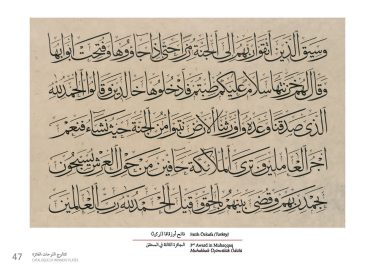 وسيق الذين اتقوا ربهم إلى الجنة زمرا حتى إذا جاؤوها وفتحت أبوابها
وقال لهم خزنتها سلام عليكم طبتم فادخلوها خالدين وقالوا الحمد لله
الذي صدقنا وعده وأورثنا الأرض نتبوأ من الجنة حيث نشاء فنعم
أجر العاملين وترى الملائكة حافين من حول العرش يسبحون
بحمد ربهم وقضي بينهم بالحق وقيل الحمد لله رب العالمين
فاتح أوزقافا (تركيا) Fatih Özkafa (Turkey)
الجائزة الثالثة في المحقق 3rd Award in Muhaqqaq
Muhakkak Üçüncülük Ödülü
47